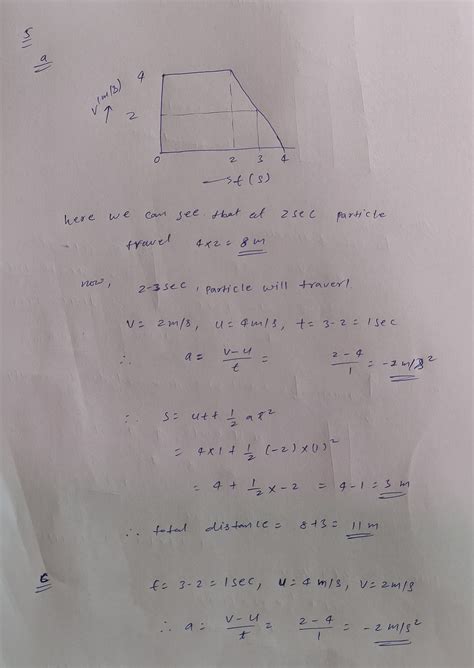 5
a
v(m/s)
4
2
0 2 3 4
t(s)
here we can see that at 2sec particle
travel 4x2 = 8 m
now, 2-3sec, particle will travel.
v= 2m/s, u= 4m/s, t= 3-2 = 1sec
∴ a= v-u/t = 2-4/1 = -2 m/s²
∴ s= ut+ 1/2 at²
= 4x1+ 1/2 (-2)x(1)²
= 4 + 1/2 x-2 = 4-1 = 3 m
∴ total distance = 8+3= 11 m
t= 3-2 = 1sec, u= 4 m/s, v= 2m/s
∴ a= v-u/t = 2-4/1 = -2 m/s²